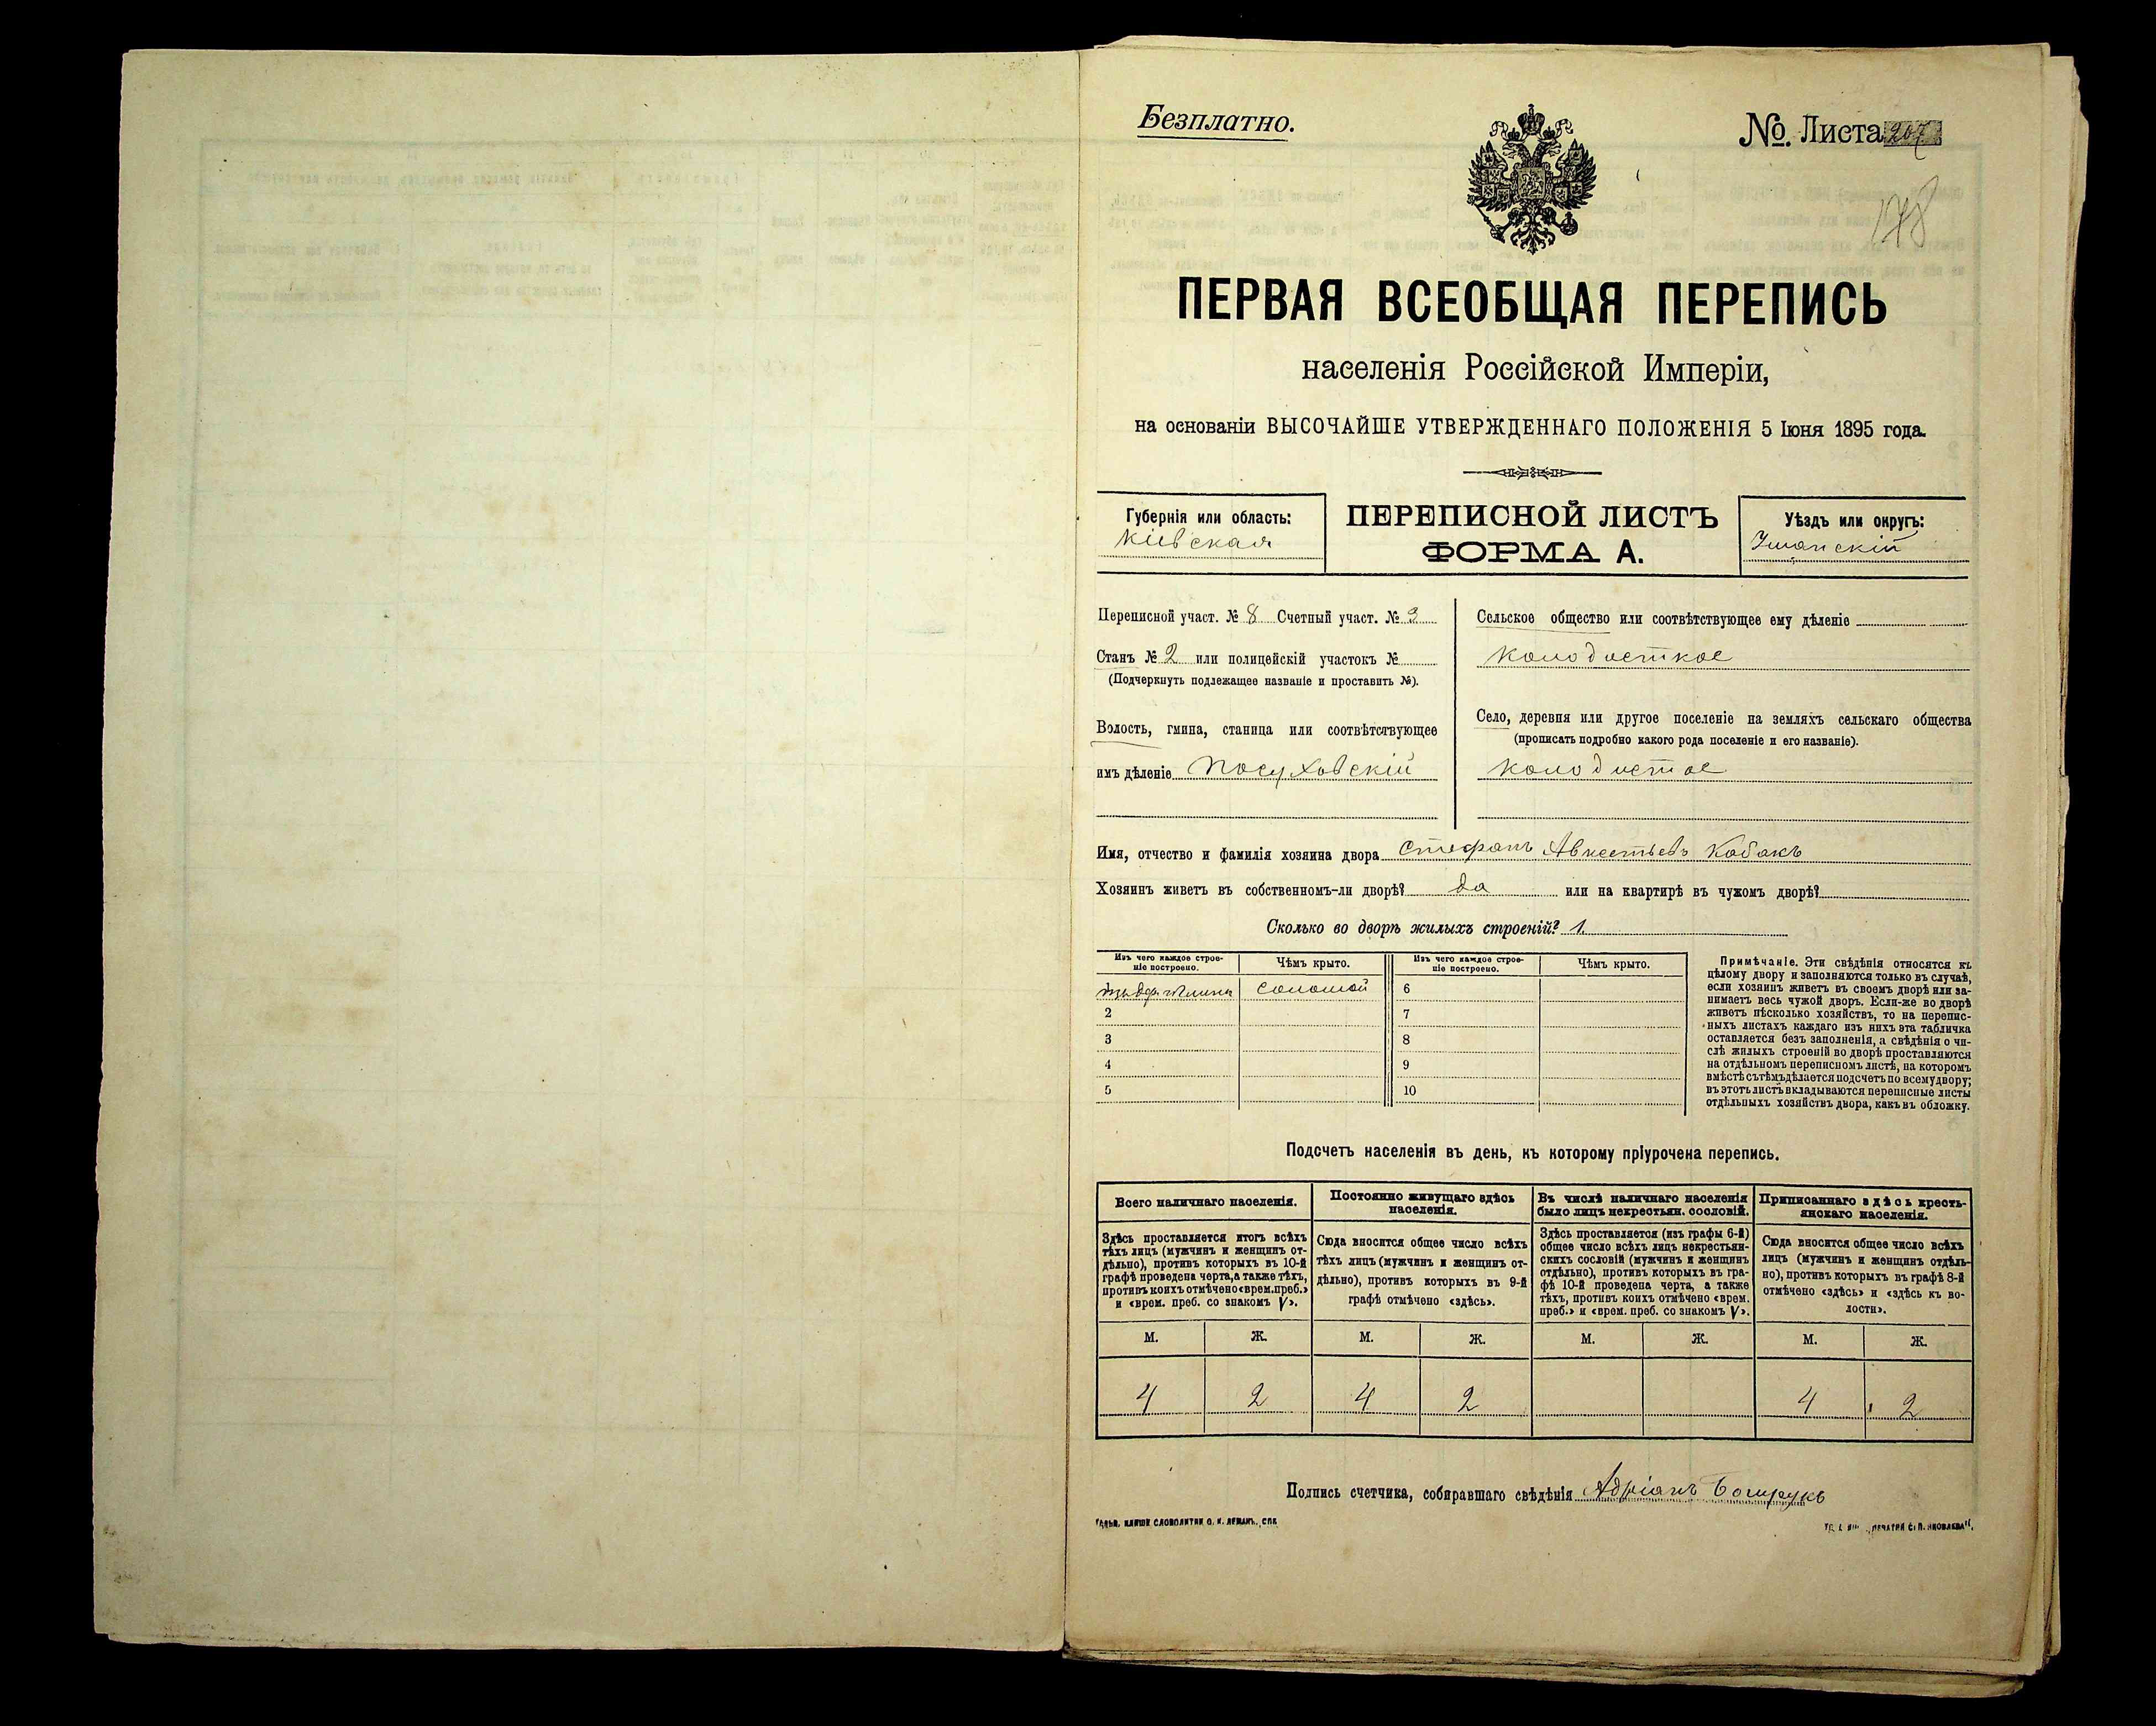 Безплатно.
№. Листа 207
178
ПЕРВАЯ ВСЕОБЩАЯ ПЕРЕПИСЬ
населенія Россійской Имперіи,
на основаніи ВЫСОЧАЙШЕ УТВЕРЖДЕННАГО ПОЛОЖЕНІЯ 5 Іюня 1895 года.
Губернія или область:
Кіевская
ПЕРЕПИСНОЙ ЛИСТЪ
ФОРМА А.
Уѣздъ или округъ:
Уманскій
Переписной участ. № 8 Счетный участ. № 3
Станъ № 2 или полицейскій участокъ №
(Подчеркнуть подлежащее названіе и проставить №).
Волость, гмина, станица или соотвѣтствующее
имъ дѣленіе Посуховскій
Сельское общество или соотвѣтствующее ему дѣленіе
Колодисткое
Село, деревня или другое поселеніе на земляхъ сельскаго общества
(прописать подробно какого рода поселеніе и его названіе).
Колодистое
Имя, отчество и фамилія хозяина двора Стефанъ Авксетьевъ Кабакъ
Хозяинъ живетъ въ собственномъ-ли дворѣ? да или на квартирѣ въ чужомъ дворѣ?
Сколько во дворѣ жилыхъ строеній? 1.
Изъ чего каждое строе-
ніе построено.
Чѣмъ крыто.
Изъ чего каждое строе-
ніе построено.
Чѣмъ крыто.
соломой
6
2
7
3
8
4
9
5
10
Примѣчаніе. Эти свѣдѣнія относятся къ
цѣлому двору и заполняются только въ случаѣ,
если хозяинъ живетъ въ своемъ дворѣ или за-
нимаетъ весь чужой дворъ. Если-же во дворѣ
живетъ нѣсколько хозяйствъ, то на перепис-
ныхъ листахъ каждаго изъ нихъ эта табличка
оставляется безъ заполненія, а свѣдѣнія о чи-
слѣ жилыхъ строеній во дворѣ проставляются
на отдѣльномъ переписномъ листѣ, на которомъ
вмѣстѣ съ тѣмъ дѣлается подсчетъ по всему двору;
въ этотъ листъ вкладываются переписные листы
отдѣльныхъ хозяйствъ двора, какъ въ обложку.
Подсчетъ населенія въ день, къ которому пріурочена перепись.
Всего наличнаго населенія.
Здѣсь проставляется итогъ всѣхъ
тѣхъ лицъ (мужчинъ и женщинъ от-
дѣльно), противъ которыхъ въ 10-й
графѣ проведена черта, а также тѣхъ,
противъ коихъ отмѣчено «врем. преб.»
и «врем. преб. со знакомъ V».
Постоянно живущаго здѣсь
населенія.
Сюда вносится общее число всѣхъ
тѣхъ лицъ (мужчинъ и женщинъ от-
дѣльно), противъ которыхъ въ 9-й
графѣ отмѣчено «здѣсь».
Въ числѣ наличнаго населенія
было лицъ некрестьян. сословій.
Здѣсь проставляется (изъ графы 6-й)
общее число всѣхъ лицъ некрестьян-
скихъ сословій (мужчинъ и женщинъ
отдѣльно), противъ которыхъ въ гра-
фѣ 10-й проведена черта, а также
тѣхъ, противъ коихъ отмѣчено «врем.
преб.» и «врем. преб. со знакомъ V».
Приписаннаго здѣсь кресть-
янскаго населенія.
Сюда вносится общее число всѣхъ
лицъ (мужчинъ и женщинъ отдѣль-
но), противъ которыхъ въ графѣ 8-й
отмѣчено «здѣсь» и «здѣсь къ во-
лости».
М. Ж. М. Ж. М. Ж. М. Ж.
4 2 4 2 4 2
Подпись счетчика, собиравшаго свѣдѣнія Адріанъ
СЛОВОЛИТНИ О. И. ЛЕМАНЪ, СПБ